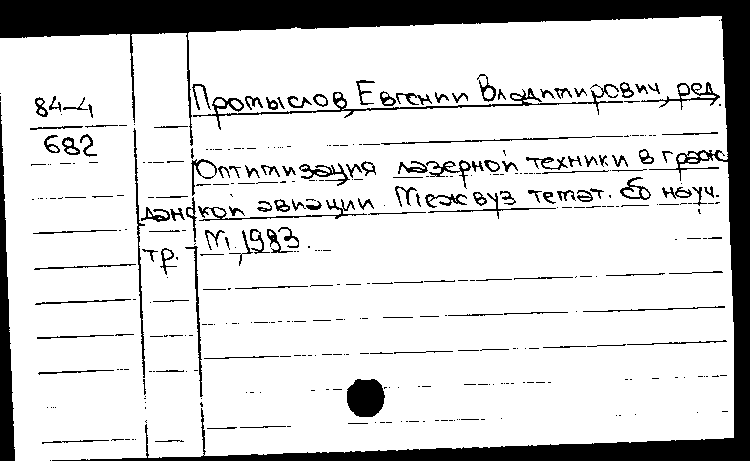 84-4
Промыслов, Евгений Владимирович, ред.
682
Оптимизация лазерной техники в граж
данской авиации. Межвуз темат. сб науч.
тр. - М, 1983.